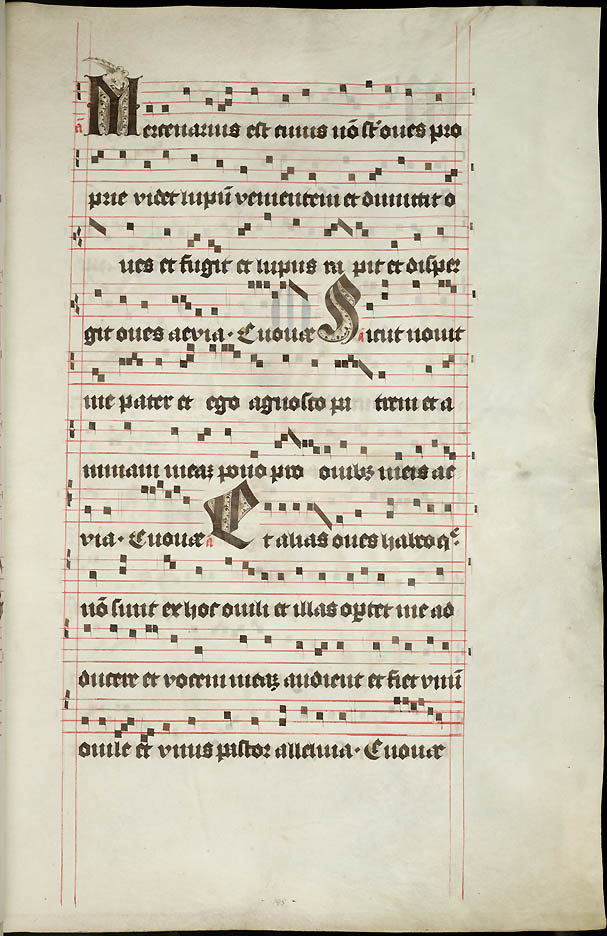 a̅ Mercenarius est cuius nō st oues pro
prie videt lupū venientem et dimittit o
ues et fugit et lupus ra pit et disper
git oues aevia · Euouae a Sicut nouit
me pater et ego agnosco pa trem et a
nimam meaꝫ pono pro ouibꝫ meis ae
via · Euouae a Et alias oues habeo q̄
nō sunt ex hoc ouili et illas oꝑtet me ad
ducere et vocem meaꝫ audient et fiet vnū
ouile et vnus pastor alleluia · Euouae